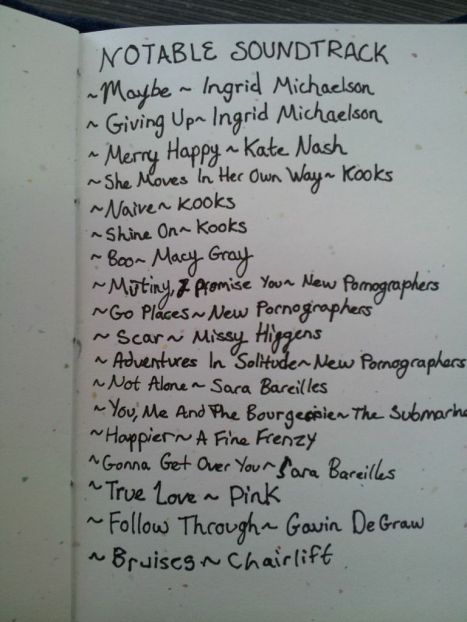 NOTABLE SOUNDTRACK
~Maybe ~ Ingrid Michaelson
~ Giving Up~ Ingrid Michaelson
~ Merry Happy ~ Kate Nash
~She Moves In Her Own Way~ Kooks
~Naive~ Kooks
~Shine On~ Kooks
~ Boo~ Macy Gray
~ Mutiny, I Promise You~ New Pornographers
~Go Places~ New Pornographers
~ Scar~ Missy Higgens
~ Adventures In Solitude~ New Pornographers
~Not Alone~ Sara Bareilles
~You, Me And The Bourgeoisie~ The Submarine
~Happier~ A Fine Frenzy
~Gonna Get Over You~ Sara Bareilles
~True Love ~ Pink
~ Follow Through~ Gavin DeGraw
~ Bruises~ Chairlift